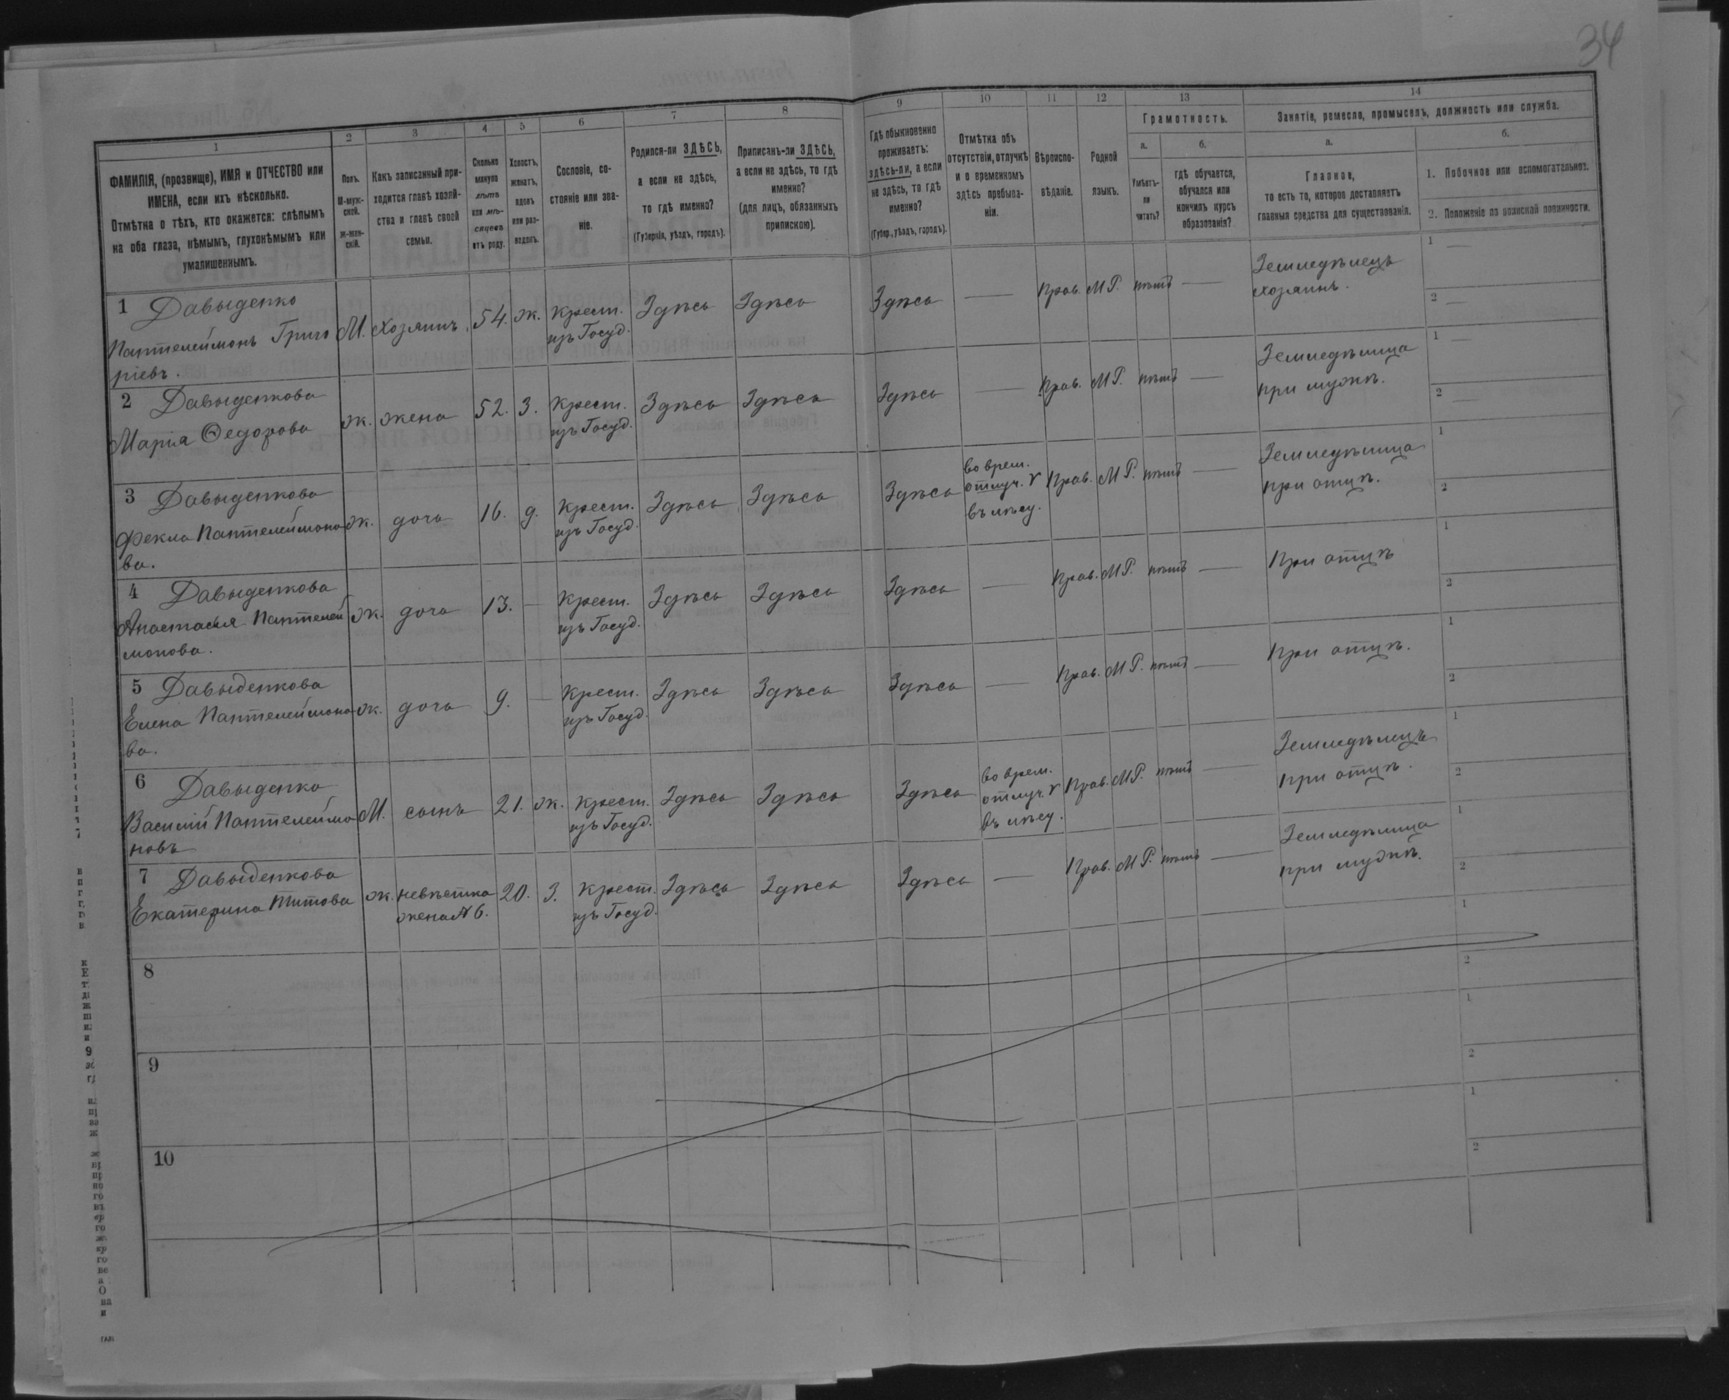 34
1
2
3
4
5
6
7
8
9
10
11
12
13
14
ФАМИЛІЯ, (прозвище), ИМЯ и ОТЧЕСТВО или
ИМЕНА, если ихъ нѣсколько.
Отмѣтка о тѣхъ, кто окажется: слѣпымъ
на оба глаза, нѣмымъ, глухонѣмымъ или
умалишеннымъ.
Полъ.
М-муж-
ской.
Ж-жен-
скій.
Какъ записанный при-
ходится главѣ хозяй-
ства и главѣ своей
семьи.
Сколько
минуло
лѣтъ
или мѣ-
сяцевъ
отъ роду.
Холостъ,
женатъ,
вдовъ
или раз-
веденъ.
Сословіе, со-
стояніе или зва-
ніе.
Родился-ли ЗДѢСЬ,
а если не здѣсь,
то гдѣ именно?
(Губернія, уѣздъ, городъ).
Приписанъ-ли ЗДѢСЬ,
а если не здѣсь, то гдѣ
именно?
(для лицъ, обязанныхъ
припискою).
Гдѣ обыкновенно
проживаетъ:
здѣсь-ли, а если
не здѣсь, то гдѣ
именно?
(Губер., уѣздъ, городъ).
Отмѣтка объ
отсутствіи, отлучкѣ
и о временномъ
здѣсь пребыва-
ніи.
Вѣроиспо-
вѣданіе.
Родной
языкъ.
Грамотность.
а.
Умѣетъ-
ли
читать?
б.
гдѣ обучается,
обучался или
кончилъ курсъ
образованія?
Занятіе, ремесло, промыселъ, должность или служба.
а.
Главное,
то есть то, которое доставляетъ
главныя средства для существованія.
б.
1. Побочное или вспомогательное.
2. Положеніе по воинской повинности.
1 Давыденко
Пантелеймонъ Григо
ріевъ.
М. Хозяинъ. 54. ж. Крест.
изъ Госуд. Здѣсь Здѣсь Здѣсь — Прав. М.Р. нѣтъ — Земледѣлецъ
хозяинъ.
1 —
2 —
2 Давыденкова
Марія Ѳедорова
ж. жена 52. З. Крест.
изъ Госуд. Здѣсь Здѣсь Здѣсь — Прав. М.Р. нѣтъ — Земледѣлица
при мужѣ.
1 —
2 —
3 Давыденкова
Фекла Пантелеймоно
ва.
ж. дочь 16. д. Крест.
изъ Госуд. Здѣсь Здѣсь Здѣсь во врем.
отлуч.
въ лѣсу. Прав. М.Р. нѣтъ — Земледѣлица
при отцѣ.
1
2
4 Давыденкова
Анастасія Пантелей
монова.
ж. дочь 13. — Крест.
изъ Госуд. Здѣсь Здѣсь Здѣсь — Прав. М.Р. нѣтъ — При отцѣ
1
2
5 Давыденкова
Елена Пантелеймоно
ва.
ж. дочь 9. — Крест.
изъ Госуд. Здѣсь Здѣсь Здѣсь — Прав. М.Р. нѣтъ — При отцѣ.
1
2
6 Давыденко
Василій Пантелеймо
новъ
М. сынъ 21. ж. Крест.
изъ Госуд. Здѣсь Здѣсь Здѣсь во врем.
отлуч.
въ лѣсу. Прав. М.Р. нѣтъ — Земледѣлецъ
при отцѣ.
1
2
7 Давыденкова
Екатерина Титова
ж. невѣстка
жена №6. 20. З. Крест.
изъ Госуд. Здѣсь Здѣсь Здѣсь — Прав. М.Р. нѣтъ — Земледѣлица
при мужѣ.
1
2
8
1
2
9
1
2
10
1
2